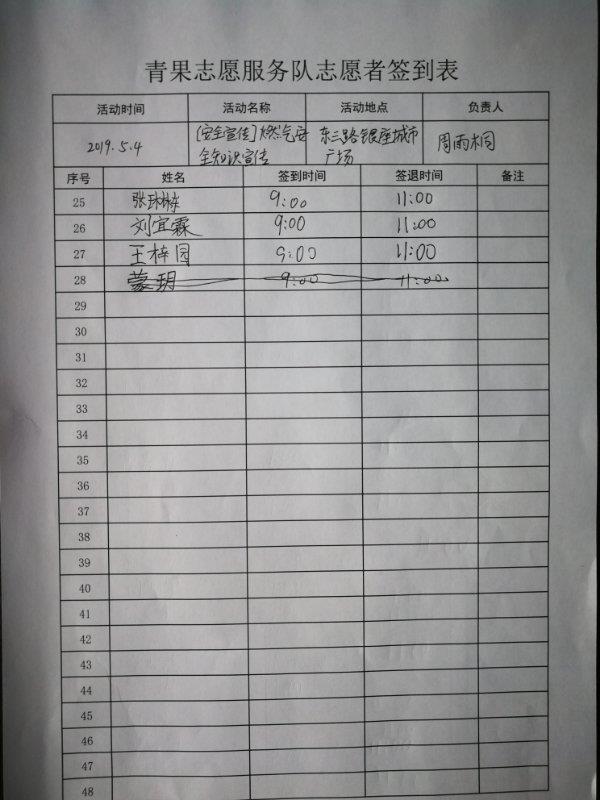 青果志愿服务队志愿者签到表
活动时间 活动名称 活动地点 负责人
2019.5.4 [安全宣传]燃气安 东三路银座城市 周雨桐
全知识宣传 广场
序号 姓名 签到时间 签退时间 备注
25 张琳栋 9:00 11:00
26 刘宜霖 9:00 11:00
27 王梓园 9:00 11:00
28 蒙玥 9:00 11:00
29
30
31
32
33
34
35
36
37
38
39
40
41
42
43
44
45
46
47
48